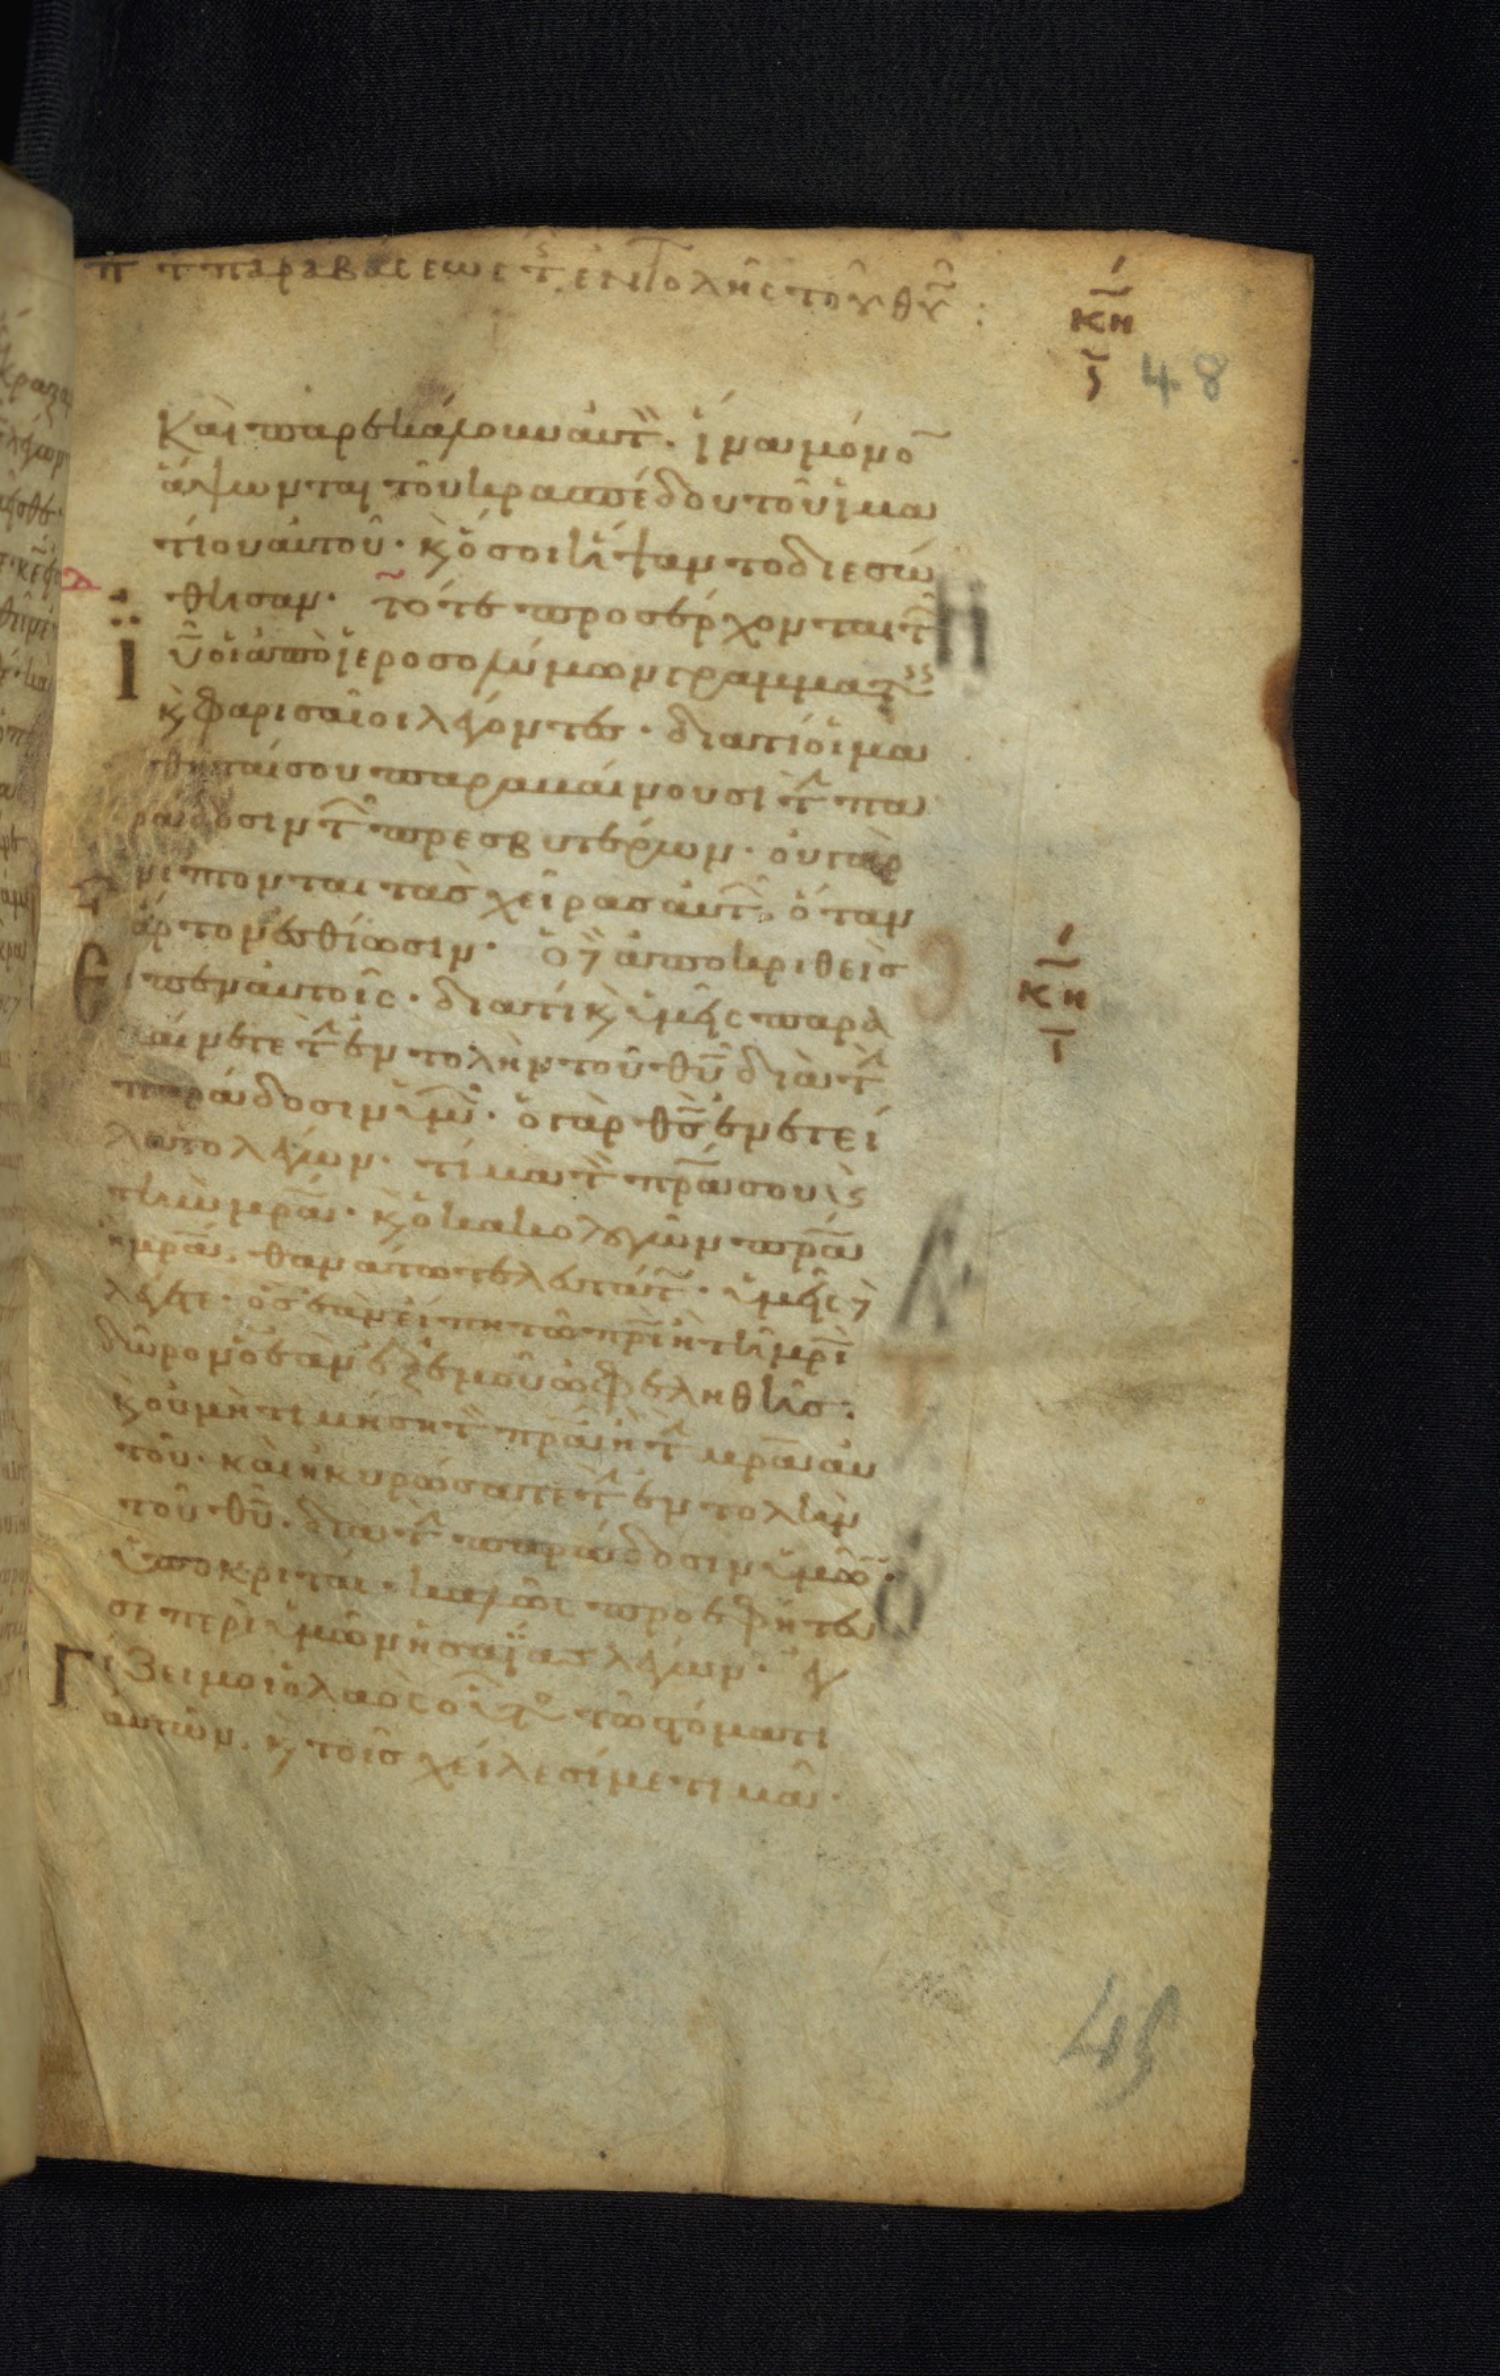 π τ παραβάσεως τ ἐντολῆς τοῦ θυ :
κη
ϛ 48
Καὶ παρεκάλουν αυτ. ἵνα μόνο
ἅψωνται τοῦ κρασπέδου τοῦ ἱμα
τίου αὐτοῦ· κ ὅσοι ἥψαντο διεσώ
θησαν. τότε προσέρχονται τ
ϊυ οἱ ἀπὸ ἱεροσολύμων γραμματ
κ φαρισαῖοι λέγοντες· διατί οἱ μα
θηταί σου παραβαίνουσι τ πα
ράδοσιν τ πρεσβυτέρων· οὐ γὰρ
νίπτονται τὰς χεῖρας αὐτ, ὅταν
ἄρτον ἐσθίωσιν. ὁ δ ἀποκριθεὶς
εἶπεν αὐτοῖς· διατί κ ὑμεῖς παρα
βαίνετε τ ἐντολὴν τοῦ θυ διὰ τ
παράδοσιν ὑμ· ὁ γὰρ θς ἐνετεί
λατο λέγων· τίμα τ πρα σου κ
τὴν μρα· κ ὁ κακολογῶν πρα
ἢ μρα, θανάτω τελευτάτ· ὑμεῖς δ
λέγετε· ὃς ἐὰν εἴπη τῶ πρι ἢ τῆ μρι
δῶρον ὃ ἐὰν ἐξ ἐμοῦ ὠφεληθῆς·
κ οὐ μὴ τιμήση τ πρα ἢ τ μρα αὐ
τοῦ· καὶ ἠκυρώσατε τ ἐντολὴν
τοῦ θυ· διὰ τ παράδοσιν ὑμῶ·
ὑποκριταί· καλῶς προεφήτευ
σε περὶ ὑμῶν ἡσαΐας λέγων· ἐγ
γίζει μοι ὁ λαὸς οὗτο τῶ στόματι
αὐτῶν, κ τοῖς χείλεσί με τιμᾶ·
κη
ι
45